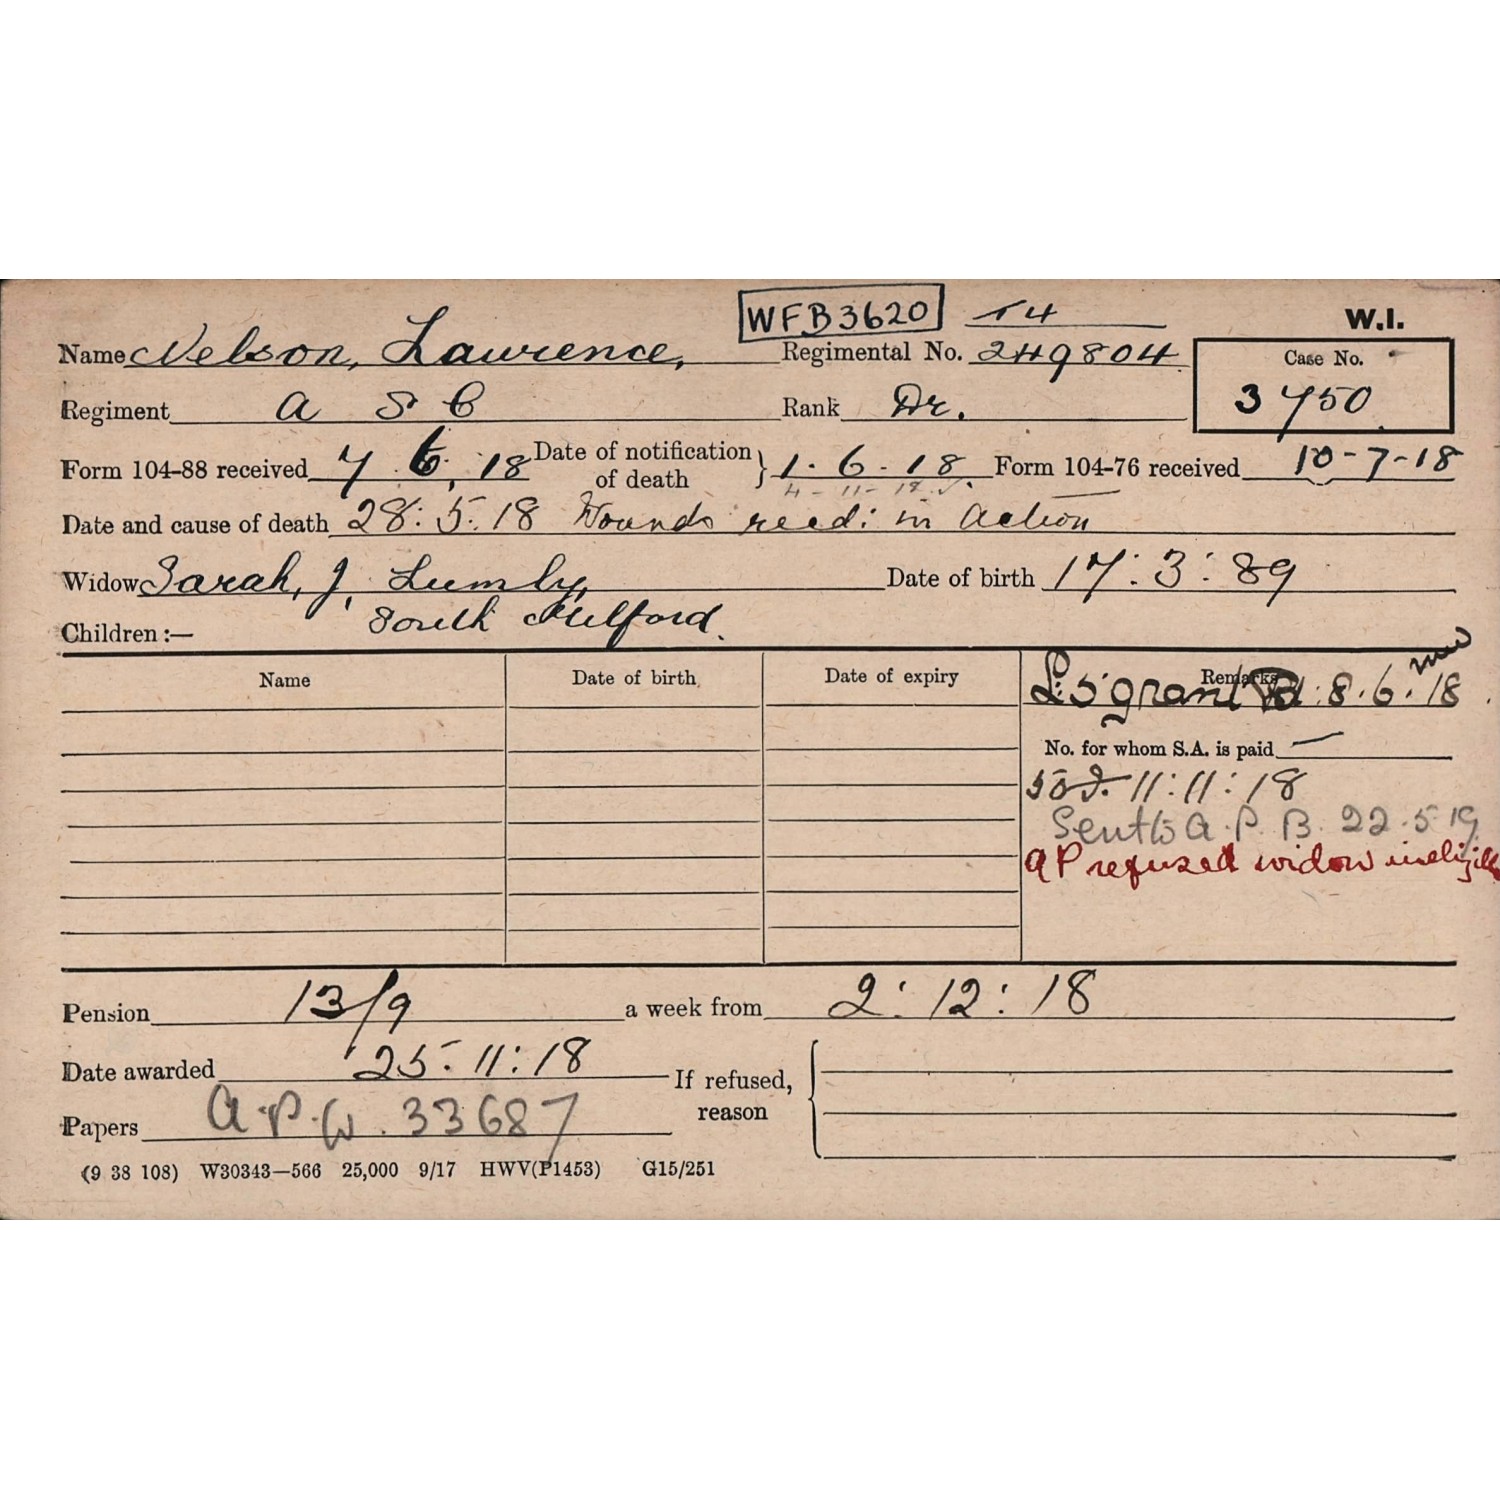 WFB3620 T4 W.I.
Name Nelson, Lawrence, Regimental No. 249804 Case No.
Regiment A S C Rank Dr. 3750
Form 104-88 received 7.6.18 Date of notification of death } 1.6.18. Form 104-76 received 10-7-18
4-11-18
Date and cause of death 28:5:18 Wounds recd: in Action
Widow Sarah, J, Lumby, Date of birth 17:3:89
South Milford.
Children :—
Name Date of birth Date of expiry Remarks
£5 grant Pd: 8.6.18
No. for whom S.A. is paid —
11:11:18
Sent to A.P.B. 22.5.19
AP refused widow ineligible
Pension 13/9 a week from 2:12:18
Date awarded 25:11:18 If refused, reason
Papers A.P.W. 33687
(9 38 108) W30343—566 25,000 9/17 HWV(P1453) G15/251